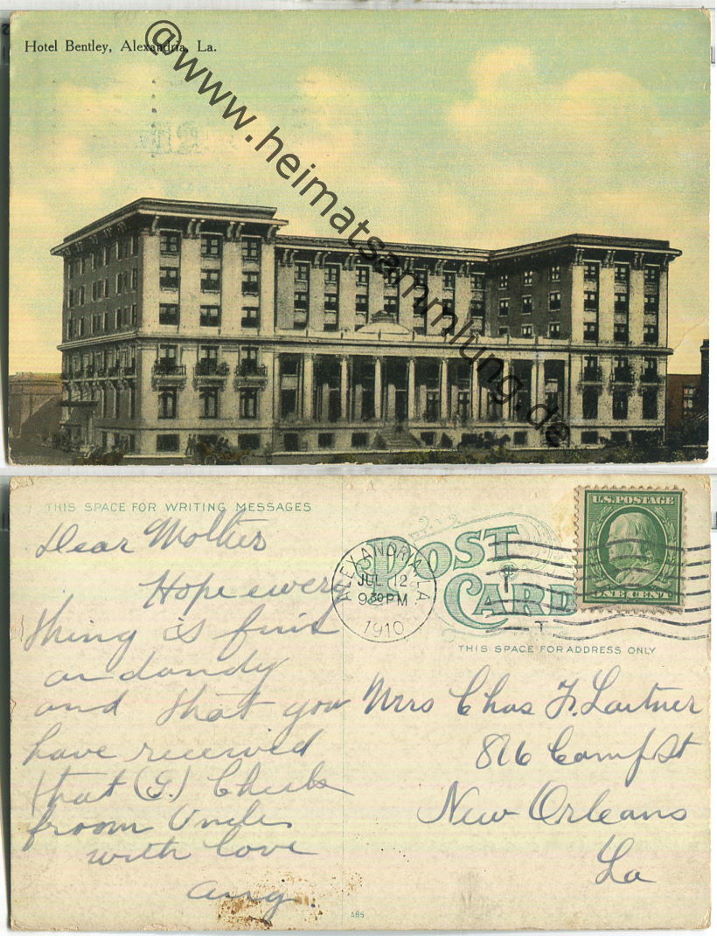 Hotel Bentley, Alexandria, La.
@www.heimatsammlung.de
THIS SPACE FOR WRITING MESSAGES
POST CARD
U.S. POSTAGE
ONE CENT
ALEXANDRIA, LA.
JUL 12
930 PM
1910
THIS SPACE FOR ADDRESS ONLY
Dear Mother
Hope ewery
thing is fine
an dandy
and that you
have received
that (G.) Check
froom Uncle
with love
Mrs Chas F.
816 Camp St
New Orleans
La